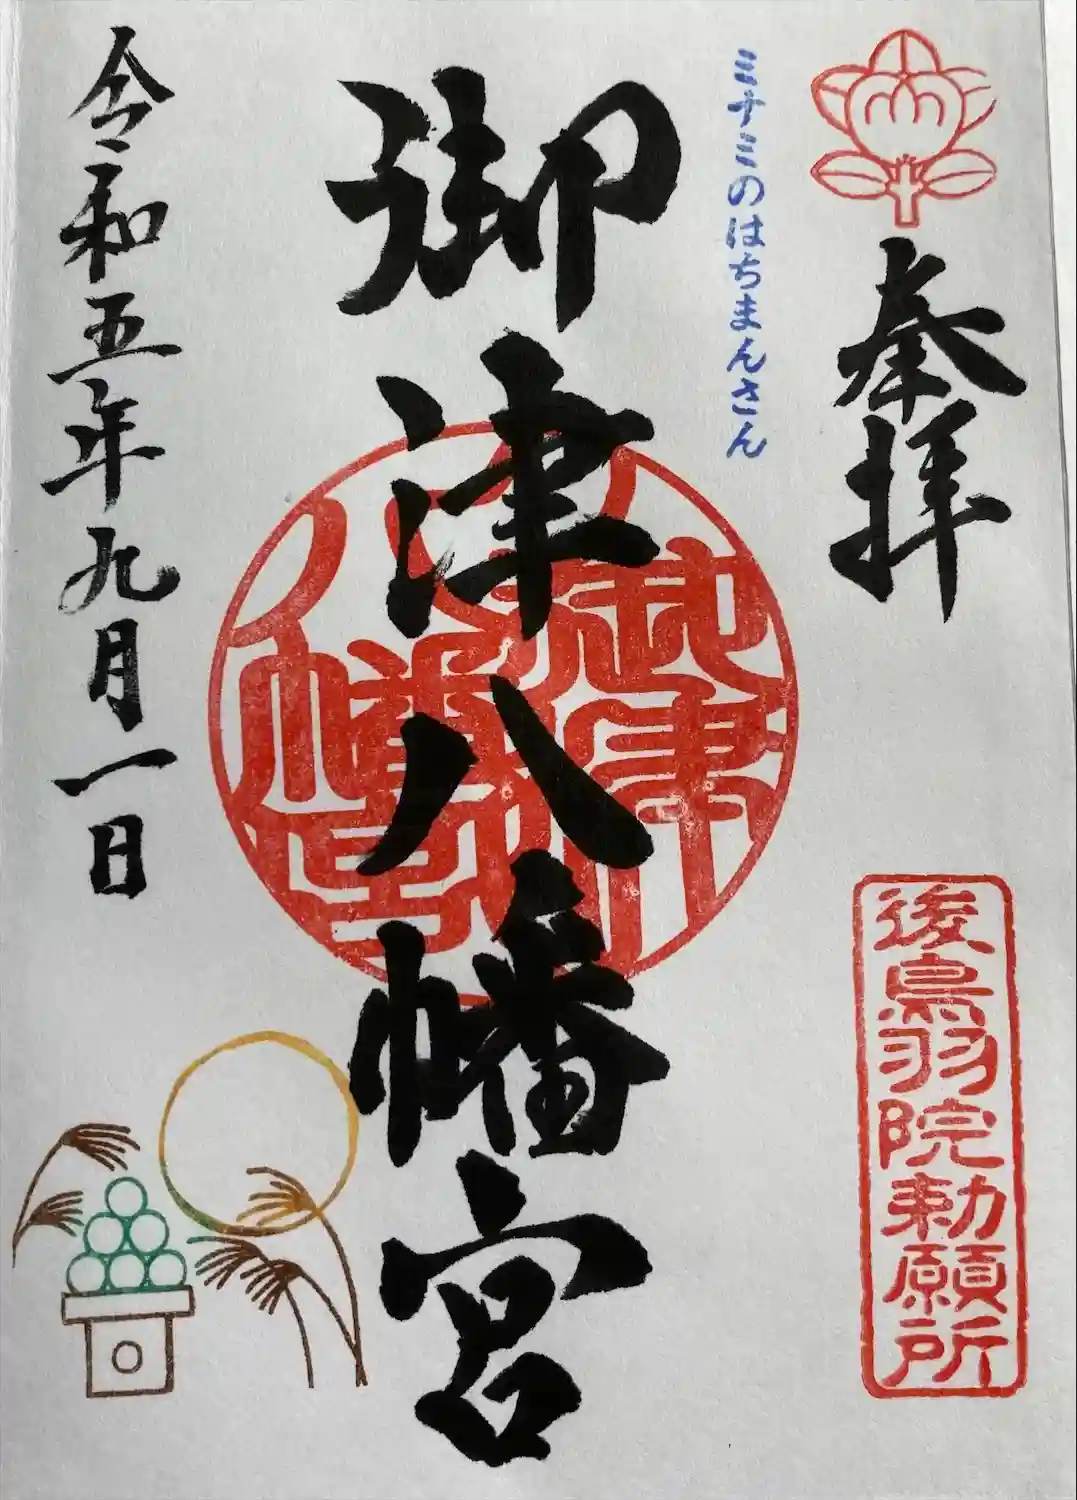 奉拝
後鳥羽院勅願所
ミナミのはちまんさん
御津八幡宮
御津
八幡宮
令和五年九月一日